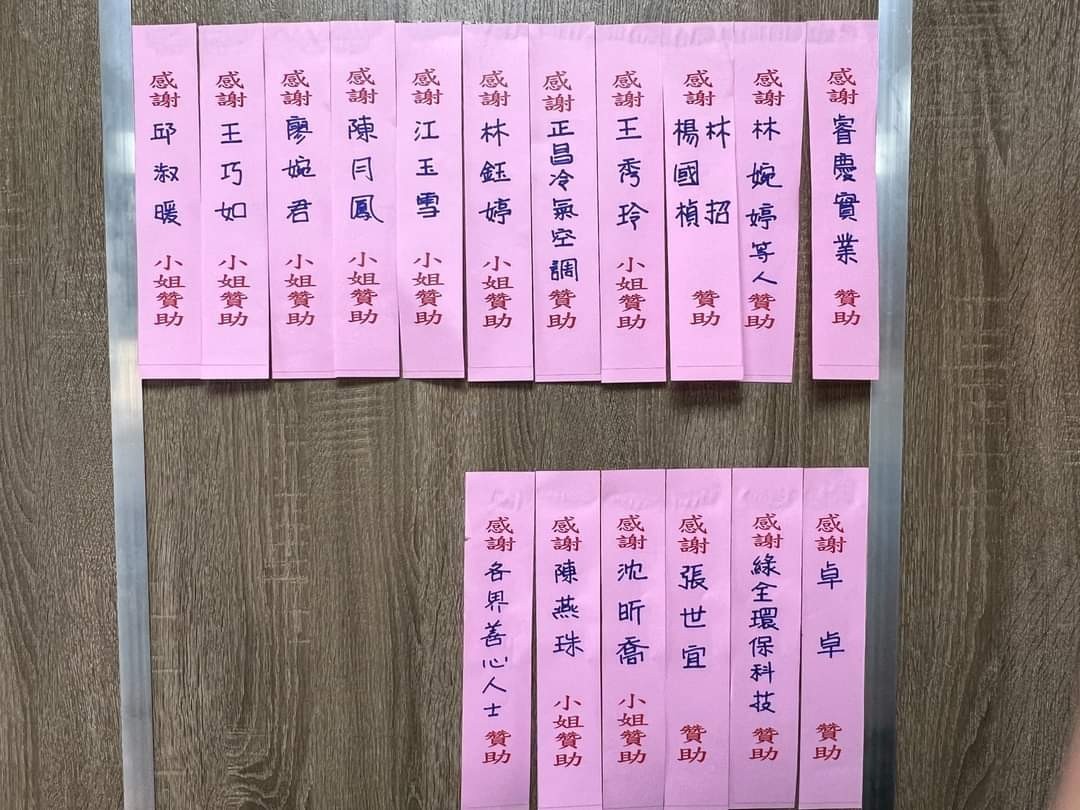 感謝睿慶實業贊助
感謝林婉婷等人贊助
感謝林招楊國楨贊助
感謝王秀玲小姐贊助
感謝正昌冷氣空調贊助
感謝林鈺婷小姐贊助
感謝江玉雪小姐贊助
感謝陳月鳳小姐贊助
感謝廖婉君小姐贊助
感謝王巧如小姐贊助
感謝邱淑暖小姐贊助
感謝卓卓贊助
感謝綠全環保科技贊助
感謝張世宜贊助
感謝沈昕喬小姐贊助
感謝陳燕珠小姐贊助
感謝各界善心人士贊助